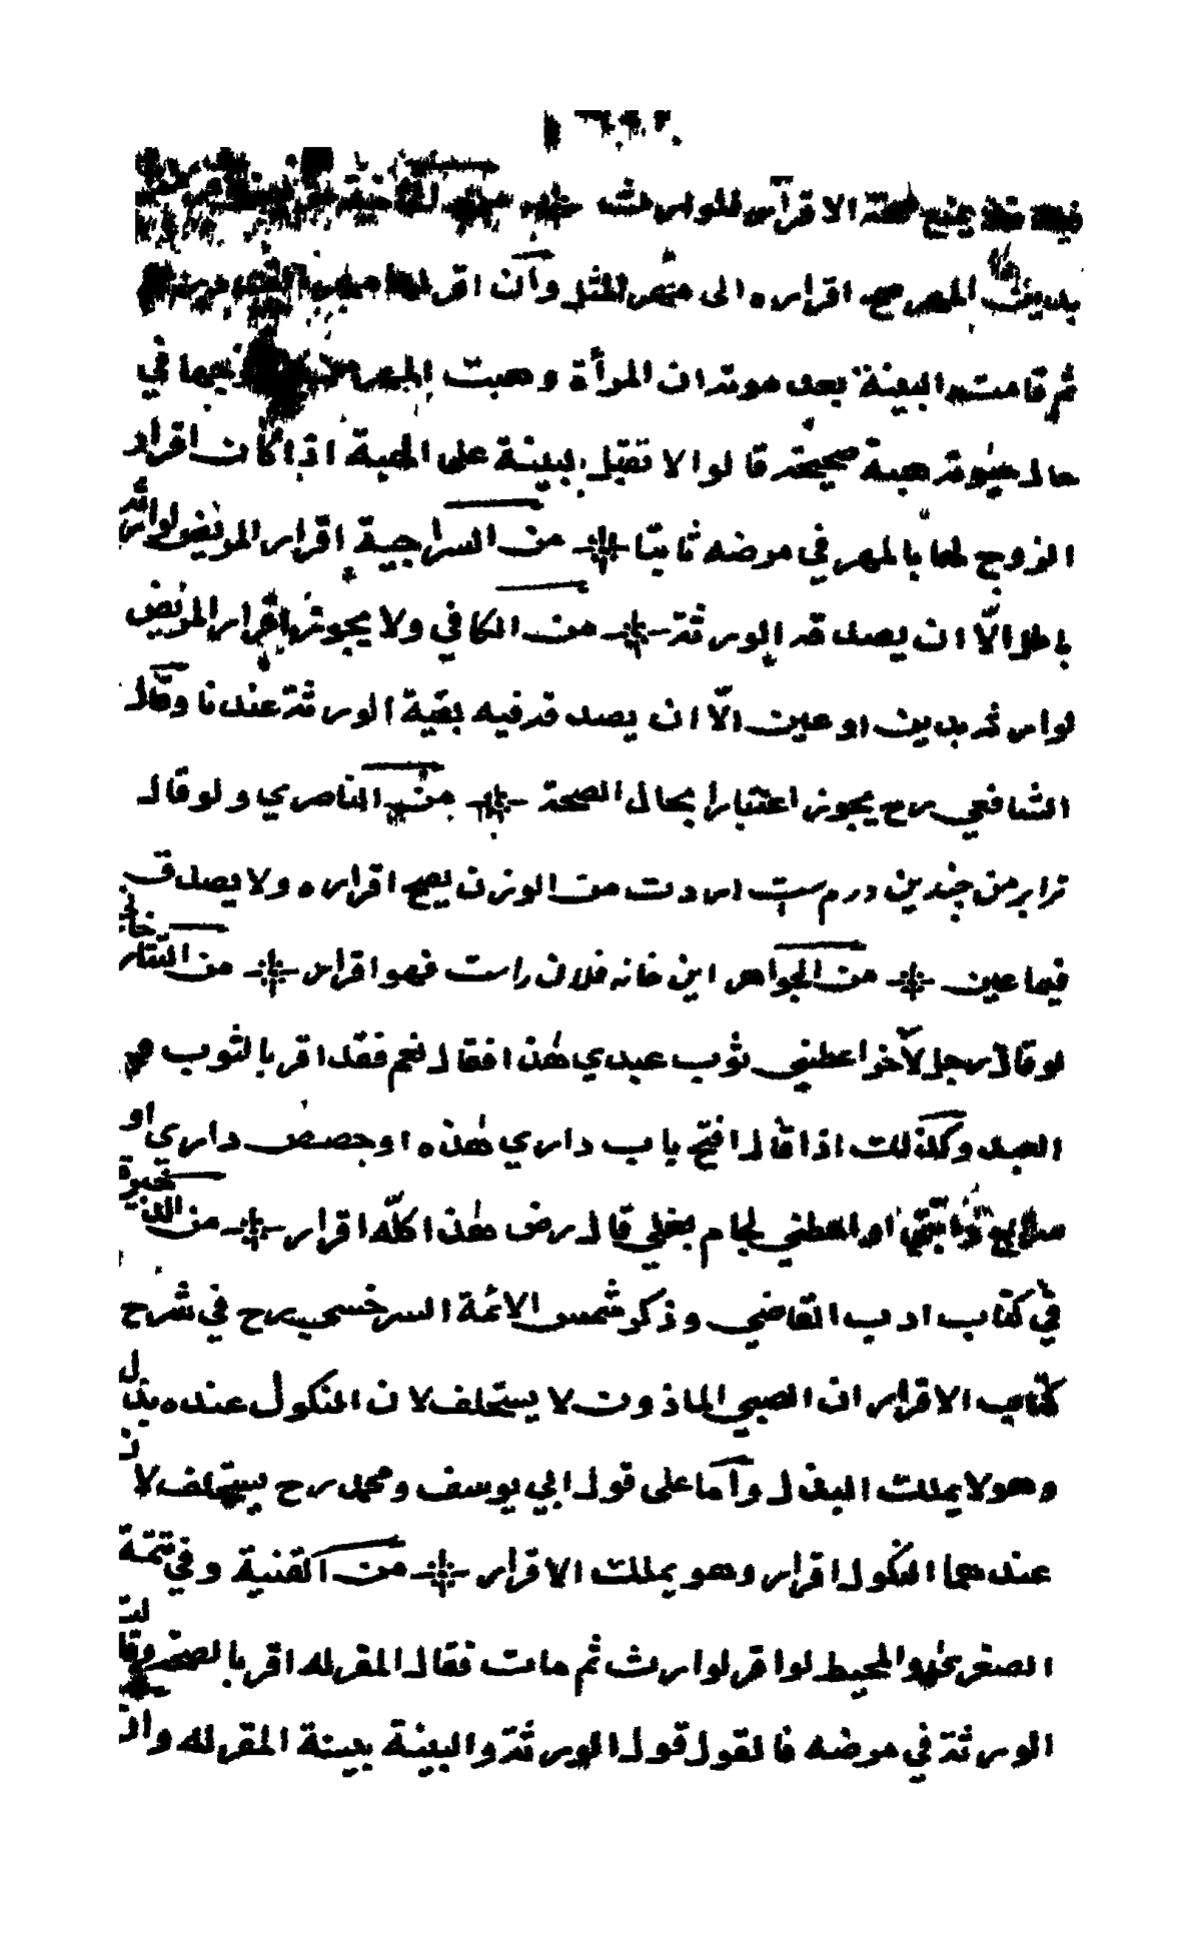 يمنع صحة الاقرار للوارث
بدين المهر صح اقراره الى مهر المثل وان اقر لها
ثم قامت البينة بعد موته ان المرأة وهبت المهر من زوجها في
حال حيوته هبة صحيحة قالوا لا تقبل بينة على الهبة اذا كان اقرار
الزوج لها بالمهر في مرضه ثابتا من السراجية اقرار المريض لوارثه
باطل الّا ان يصدقه الورثة من الكافي ولا يجوز اقرار المريض
لوارثه بدين او عين الّا ان يصدقه فيه بقية الورثة عندنا وقال
الشافعي رح يجوز اعتبارا بحال الصحة من الناصري ولو قال
ترا برمن چندين درم ست ارديت من الوزن يصح اقراره ولا يصدق
فيما عين من الجواهر اين خانه فلان راست فهو اقرار من التتارخان
لو قال رجل لآخر اعطني ثوب عبدي هذا فقال نعم فقد اقر بالثوب
العبد وكذلك اذا قال افتح باب داري هذه او جصص داري او
او اعطني لجام بغلي قال رض هذا كله اقرار من الذخيرة
في كتاب ادب القاضي وذكر شمس الائمة السرخسي رح في شرح
كتاب الاقرار ان الصبي الماذون لا يستحلف لان النكول عنده بذل
وهو لا يملك البذل واما على قول ابي يوسف ومحمد رح يستحلف لان
عندهما النكول اقرار وهو يملك الاقرار من القنية وفي تتمة
الصغرى والمحيط لو اقر لوارث ثم مات فقال المقر له اقر بالصحة وقالت
الورثة في مرضه فالقول قول الورثة والبينة بينة المقر له وان